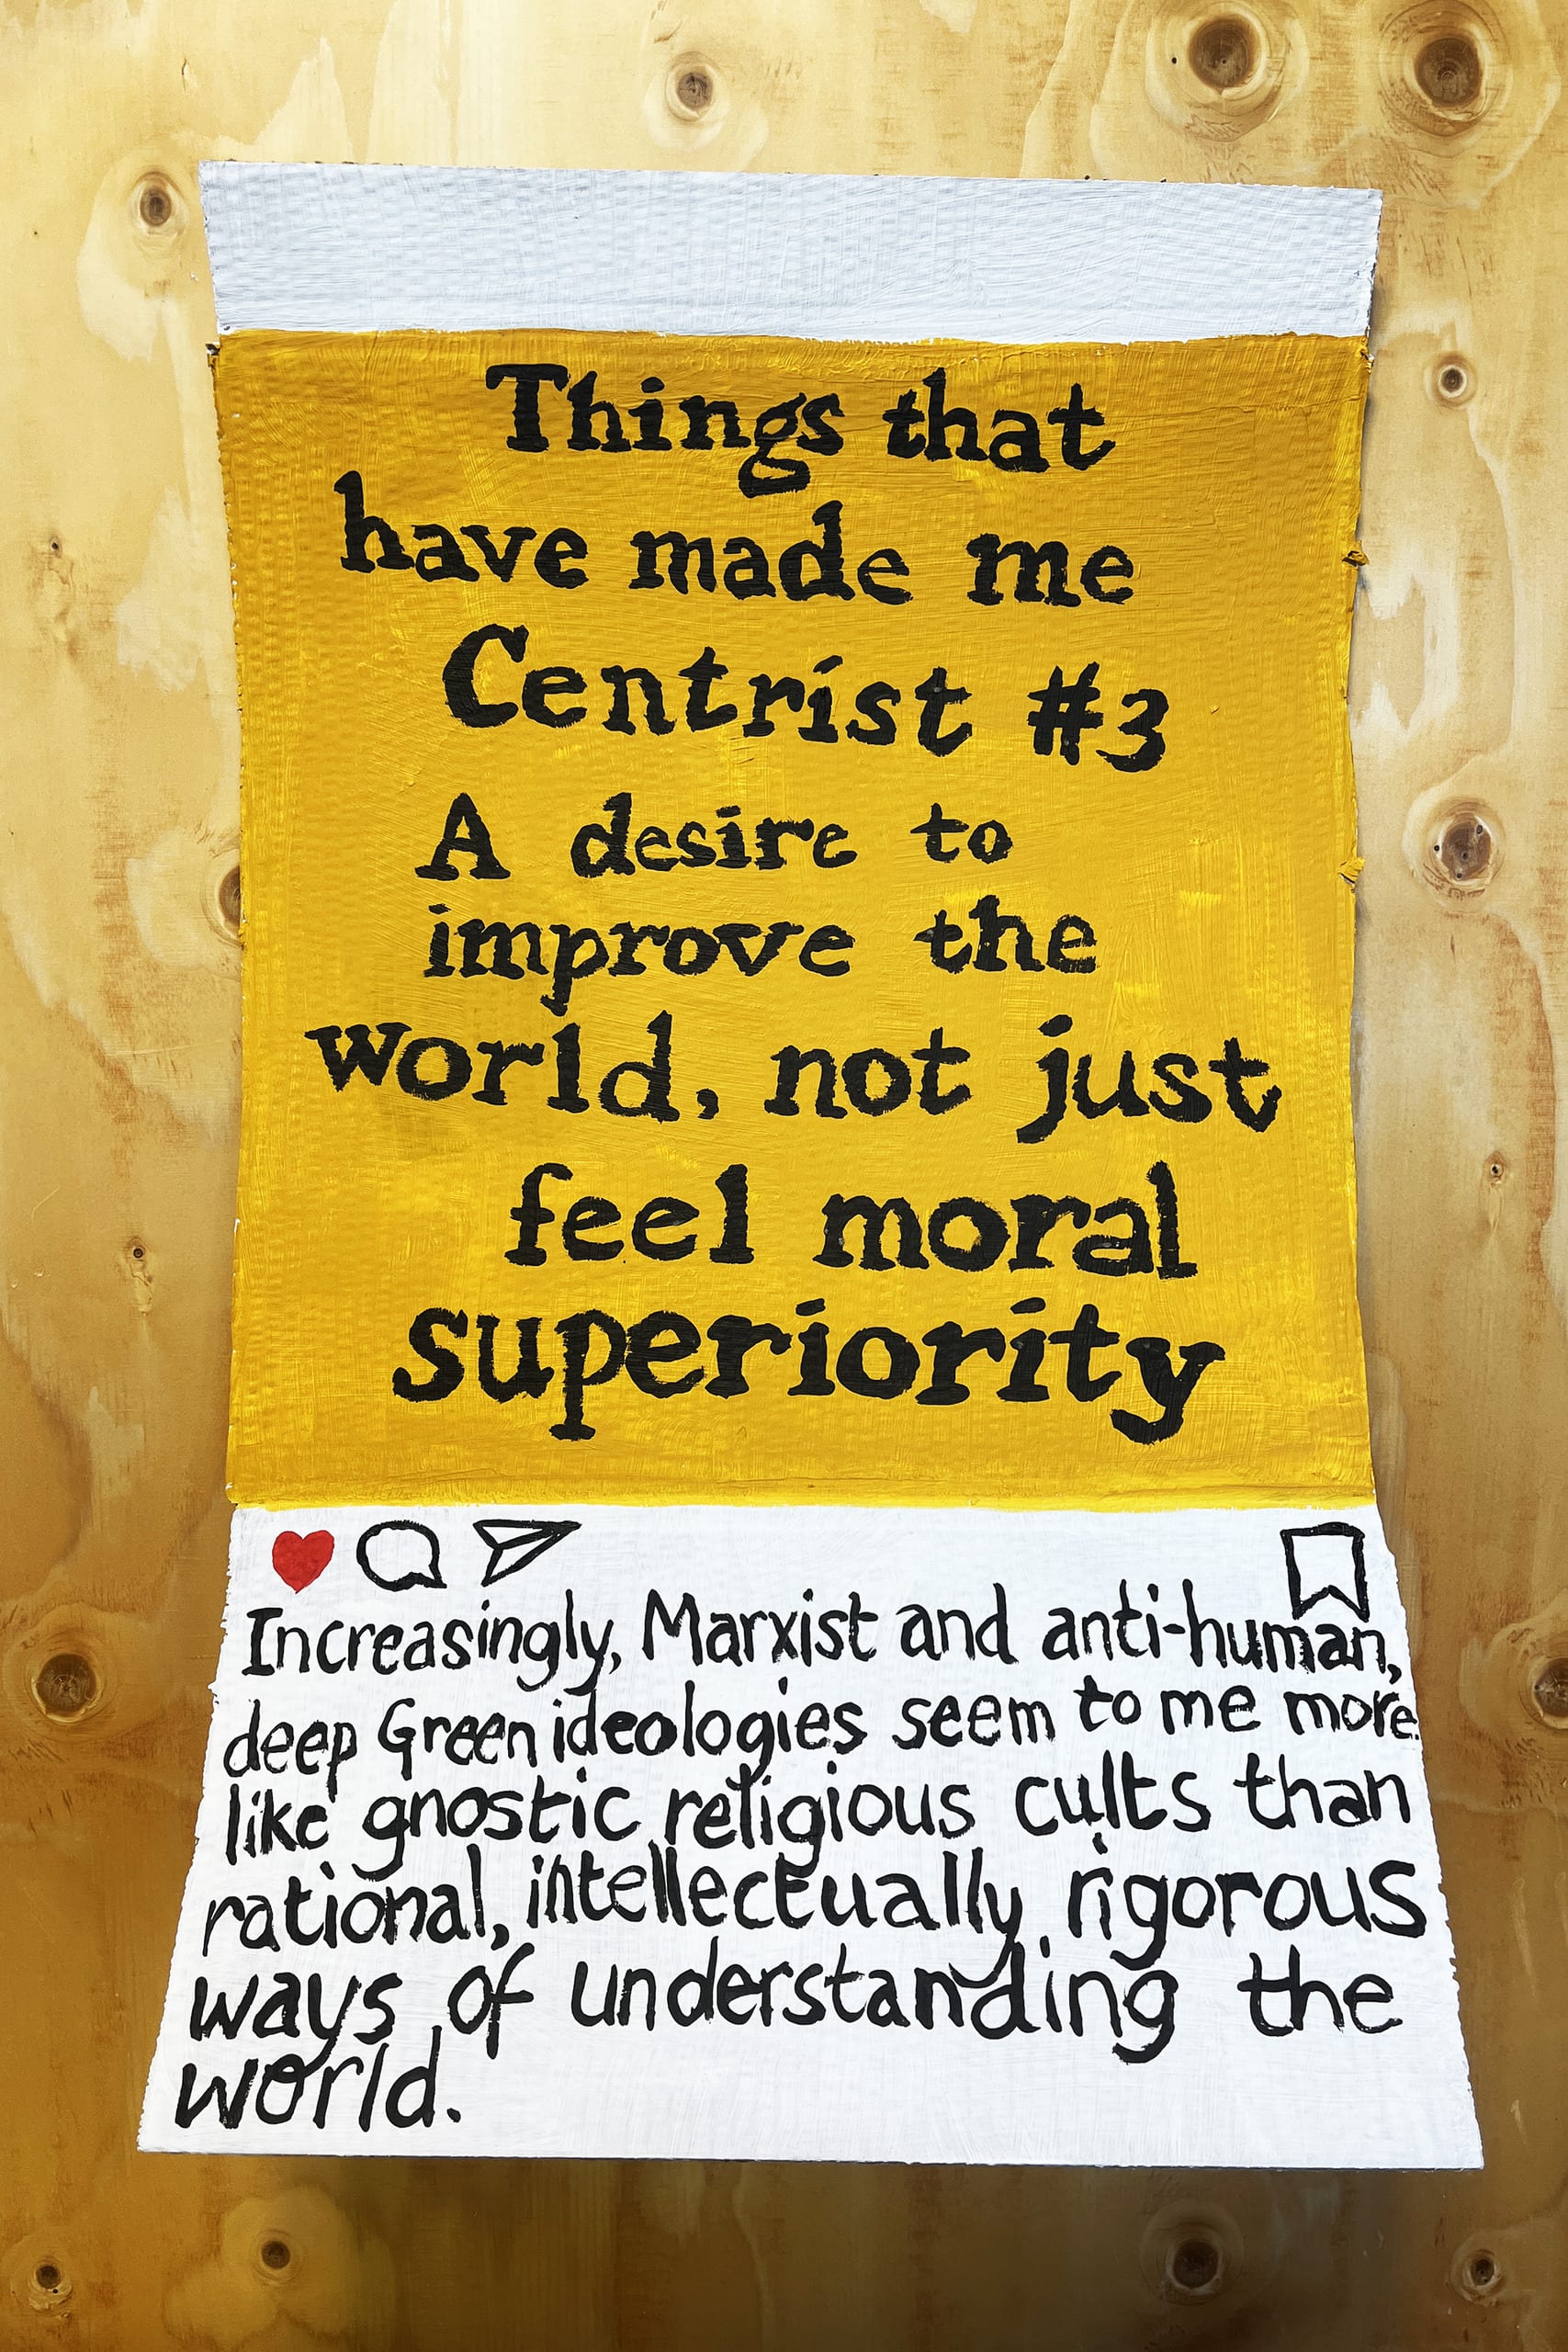 Things that
have made me
Centrist #3
A desire to
improve the
world, not just
feel moral
superiority
Increasingly, Marxist and anti-human,
deep Green ideologies seem to me more
like gnostic religious cults than
rational, intellectually rigorous
ways of understanding the
world.